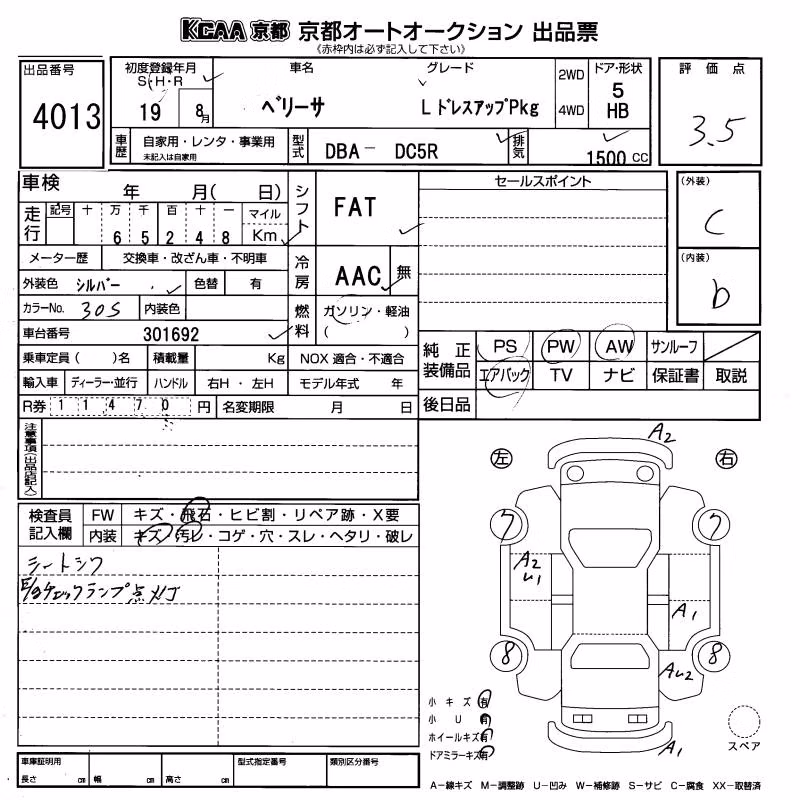 KCAA 京都 京都オートオークション 出品票
《赤枠内は必ず記入して下さい》
出品番号 4013
初度登録年月 S・H・R 19 8月
車名 ベリーサ
グレード L ドレスアップPkg
2WD 4WD
ドア・形状 5 HB
評価点 3.5
車歴 自家用・レンタ・事業用 未記入は自家用
型式 DBA- DC5R
排気 1500 CC
車検 年 月( 日)
シフト FAT
セールスポイント
(外装) C
(内装) b
走行 記号 十 万 千 百 十 一 マイル
6 5 2 4 8 Km
メーター歴 交換車・改ざん車・不明車
冷房 AAC 無
外装色 シルバー 色替 有
カラーNo. 30S 内装色
燃料 ガソリン・軽油 ( )
車台番号 301692
乗車定員( )名 積載量 Kg NOX 適合・不適合
輸入車 ディーラー・並行 ハンドル 右H・左H モデル年式 年
R券 11470 円 名変期限 月 日
純正装備品 PS PW AW サンルーフ
エアバック TV ナビ 保証書 取説
後日品
注意事項(出品店記入)
検査員記入欄 FW キズ・飛石・ヒビ割・リペア跡・X要
内装 キズ・汚レ・コゲ・穴・スレ・ヘタリ・破レ
シートシワ
E/gチェックランプ点メツ
左 右
A2
7 7
A2
U1
A1
8 8
AU2
A1
小キズ 有
小U 有
ホイールキズ 有
ドアミラーキズ 有
スペア
車庫証明用 長さ cm 幅 cm 高さ cm 型式指定番号 類別区分番号
A-線キズ M-調整跡 U-凹み W-補修跡 S-サビ C-腐食 XX-取替済